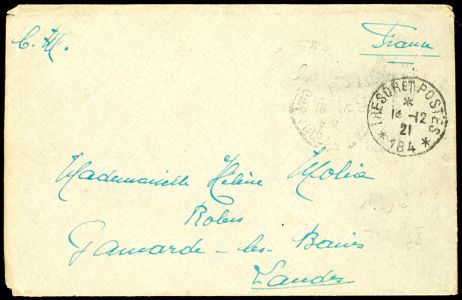 C. M.
France
TRESOR ET POSTES
*
14-12
21
* 184 *
Mademoiselle Hélène Molia
Robes
Gamarde-les-Bains
Landes